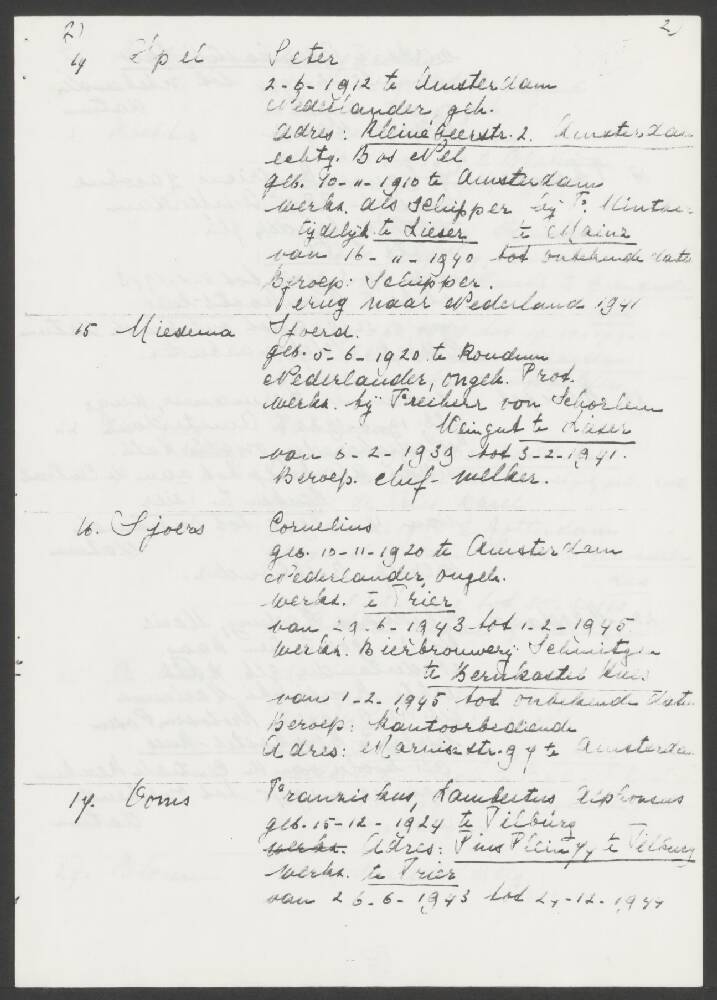 2) 2)
14 Apel Peter
2-6-1912 te Amsterdam
Nederlander, geh.
Adres: Kleine Geerstr. 2. Amsterdam
echtg. Bos Nel
geb. 10-11-1910 te Amsterdam
werkz. als Schipper bij
tijdelijk te Lieser te Mainz
van 16-11-1940 tot onbekende datum
Beroep: Schipper.
Terug naar Nederland 1941
15 Miedema Sjoerd.
geb. 5-6-1920 te Koudum
Nederlander, ongeh. Prot.
werkz. bij Freiherr von Schorlem
Weingut te Lieser
van 6-2-1939 tot 3-2-1941.
Beroep. chef-melker.
16. Sjoers Cornelius
geb. 10-11-1920 te Amsterdam
Nederlander, ongeh.
werkz. te Trier
van 29-6-1943 tot 1-2-1945
werkz. Bierbrouwerij Schmitzen
te Bernkastel Kues
van 1-2-1945 tot onbekende dat.
Beroep: kantoorbediende
Adres: Marnixstr. 94 te Amsterda
17. Ooms Franziskus, Lambertus Alphonsus
geb. 15-12-1924 te Tilburg
werkz. Adres: Pius Plein 74 te Tilburg
werkz. te Trier
van 26-6-1943 tot 24-12-1944